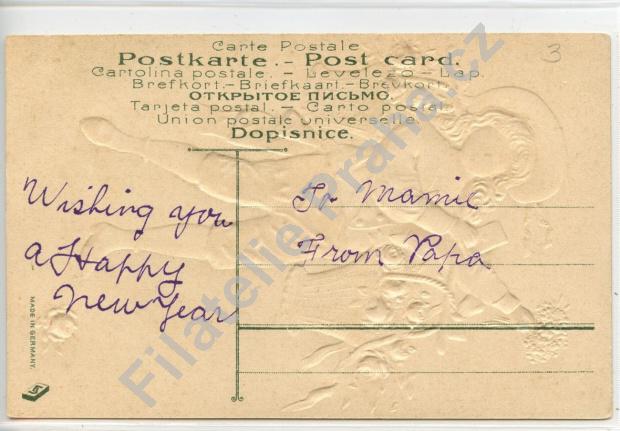 Carte Postale
Postkarte. - Post card.
Cartolina postale. - Levelező - Lap.
Brefkort. - Briefkaart. - Brevkort.
ОТКРЫТОЕ ПИСЬМО.
Tarjeta postal. - Carto postal.
Union postale universelle.
Dopisnice.
3
Wishing you
a Happy
New Year
To Mamie
From Papa
MADE IN GERMANY.
Filatelie Praha.cz